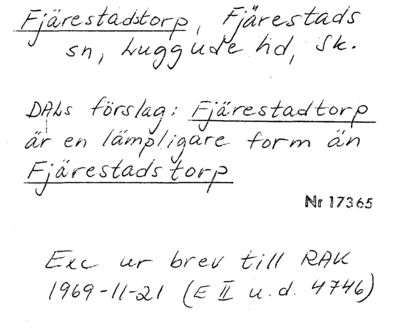 Fjärestadstorp, Fjärestads
sn, Luggude hd, Sk.
DALs förslag: Fjärestadtorp
är en lämpligare form än
Fjärestadstorp
Nr 17365
Exc ur brev till RAK
1969-11-21 (E II u.d. 4746)